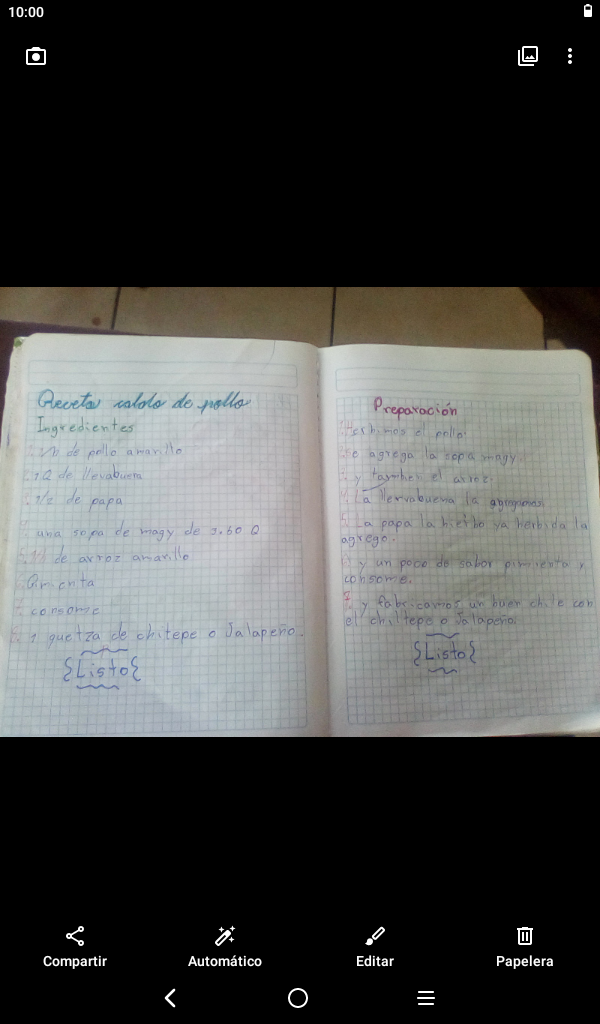 10:00
Receta caldo de pollo
Ingredientes
1. 1/lb de pollo amarillo
2. 1Q de llevabuena
3. 1/2 de papa
4. una sopa de magy de 3.60 Q
5. 1/2 de arroz amarillo
6. Pimienta
7. consome
8. 1 quetza de chitepe o Jalapeño.
{Listo{
Preparación
1. Herbimos el pollo.
2. Se agrega la sopa magy.
3. y tambien el arroz.
4. La llervabuena la agregamos.
5. La papa la hierbo ya herbida la
agrego.
6. y un poco de sabor pimienta y
consome.
7. y fabricamos un buen chile con
el chiltepe o Jalapeño.
{Listo{
Compartir
Automático
Editar
Papelera